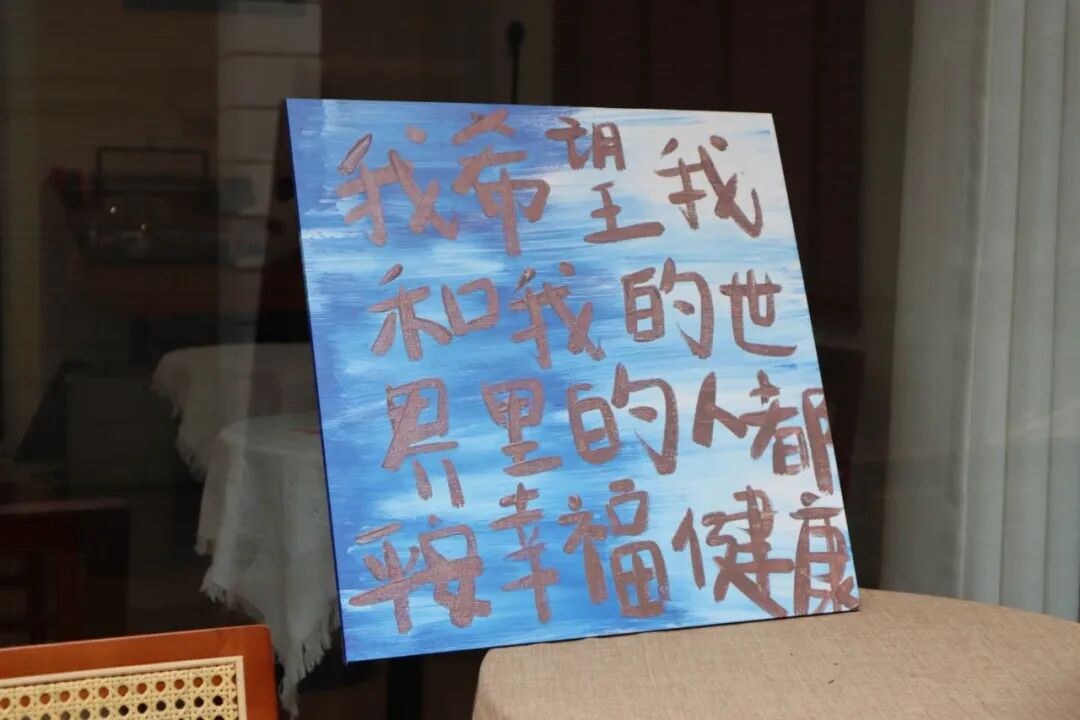 我希望我
和我的世
界里的人都
平安幸福健康